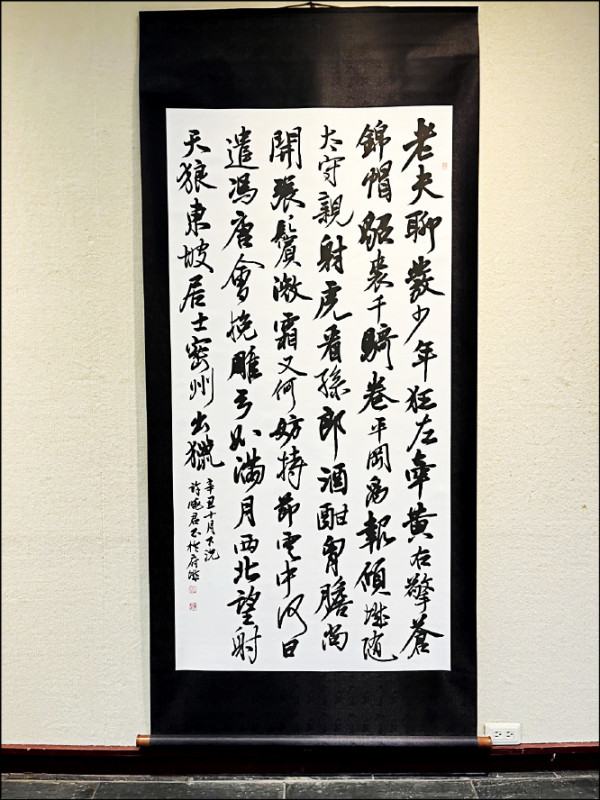 老夫聊發少年狂左牽黃右擎蒼
錦帽貂裘千騎卷平岡為報傾城隨
太守親射虎看孫郎酒酣胸膽尚
開張鬢微霜又何妨持節雲中何日
遣馮唐會挽雕弓如滿月西北望射
天狼東坡居士密州出獵
辛丑十月下浣